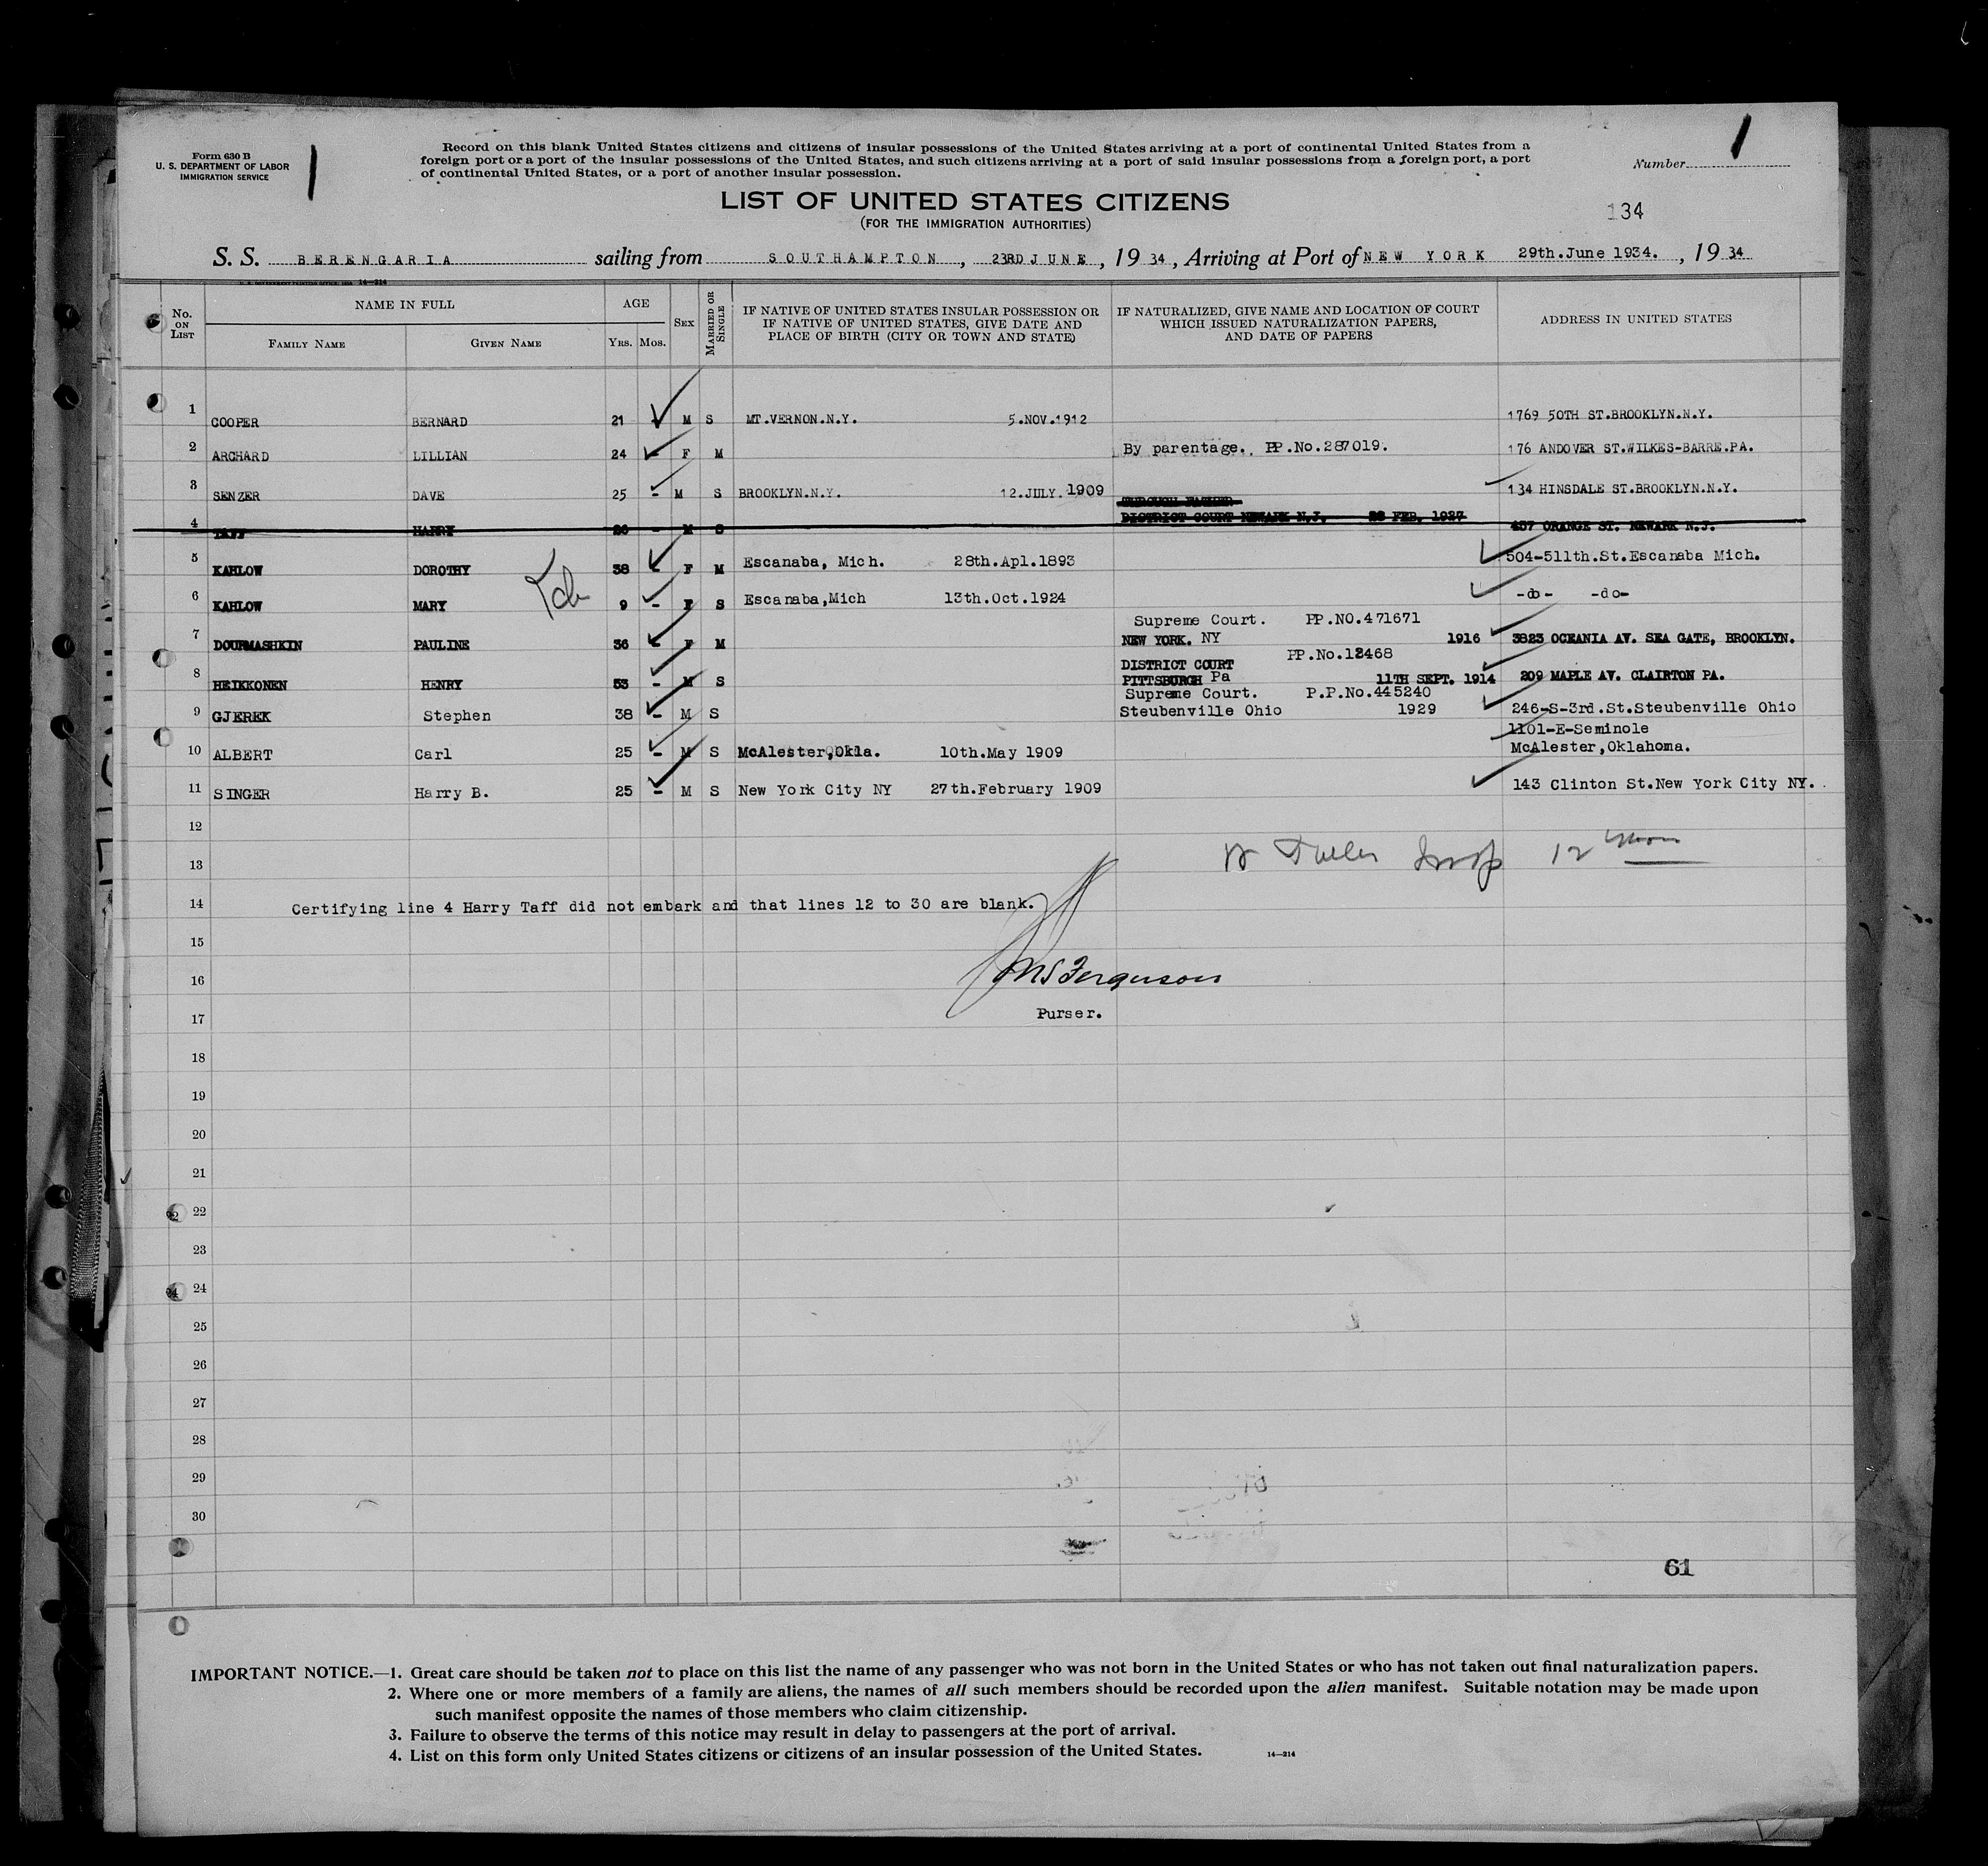 Form 630 B
U. S. DEPARTMENT OF LABOR
IMMIGRATION SERVICE
1
Record on this blank United States citizens and citizens of insular possessions of the United States arriving at a port of continental United States from a
foreign port or a port of the insular possessions of the United States, and such citizens arriving at a port of said insular possessions from a foreign port, a port
of continental United States, or a port of another insular possession.
Number 1
LIST OF UNITED STATES CITIZENS
(FOR THE IMMIGRATION AUTHORITIES)
134
S. S. BERENGARIA sailing from SOUTHAMPTON, 23RD JUNE, 1934, Arriving at Port of NEW YORK 29th.June 1934., 1934
No. ON LIST
NAME IN FULL
FAMILY NAME GIVEN NAME
AGE
YRS. MOS.
SEX
MARRIED OR SINGLE
IF NATIVE OF UNITED STATES INSULAR POSSESSION OR
IF NATIVE OF UNITED STATES, GIVE DATE AND
PLACE OF BIRTH (CITY OR TOWN AND STATE)
IF NATURALIZED, GIVE NAME AND LOCATION OF COURT
WHICH ISSUED NATURALIZATION PAPERS,
AND DATE OF PAPERS
ADDRESS IN UNITED STATES
1 COOPER BERNARD 21 M S MT.VERNON.N.Y. 5.NOV.1912 1769 50TH ST.BROOKLYN.N.Y.
2 ARCHARD LILLIAN 24 - F M By parentage. PP.No.287019. 176 ANDOVER ST.WILKES-BARRE.PA.
3 SENZER DAVE 25 - M S BROOKLYN.N.Y. 12.JULY.1909 134 HINSDALE ST.BROOKLYN.N.Y.
THROUGH FATHER
4 TAFF HARRY 26 - M S DISTRICT COURT NEWARK N.J. 28 FEB. 1927 457 ORANGE ST. NEWARK N.J.
5 KAHLOW DOROTHY 38 - F M Escanaba, Mich. 28th.Apl.1893 504-511th.St.Escanaba Mich.
6 KAHLOW MARY 9 - F S Escanaba,Mich 13th.Oct.1924 -do- -do-
Supreme Court. PP.NO.471671
7 DOURMASHKIN PAULINE 36 - F M NEW YORK. NY 1916 3823 OCEANIA AV. SEA GATE, BROOKLYN.
DISTRICT COURT PP.No.12468
8 HEIKKONEN HENRY 53 - M S PITTSBURGH Pa 11TH SEPT. 1914 209 MAPLE AV. CLAIRTON PA.
Supreme Court. P.P.No.445240
9 GJEREK Stephen 38 - M S Steubenville Ohio 1929 246-S-3rd.St.Steubenville Ohio
1101-E-Seminole
10 ALBERT Carl 25 - M S McAlester,Okla. 10th.May 1909 McAlester,Oklahoma.
11 SINGER Harry B. 25 - M S New York City NY 27th.February 1909 143 Clinton St.New York City NY.
12
13 12
14 Certifying line 4 Harry Taff did not embark and that lines 12 to 30 are blank.
15
16 Ferguson
17 Purser.
18
19
20
21
22
23
24
25
26
27
28
29
30
61
IMPORTANT NOTICE.—1. Great care should be taken not to place on this list the name of any passenger who was not born in the United States or who has not taken out final naturalization papers.
2. Where one or more members of a family are aliens, the names of all such members should be recorded upon the alien manifest. Suitable notation may be made upon
such manifest opposite the names of those members who claim citizenship.
3. Failure to observe the terms of this notice may result in delay to passengers at the port of arrival.
4. List on this form only United States citizens or citizens of an insular possession of the United States.
14—214